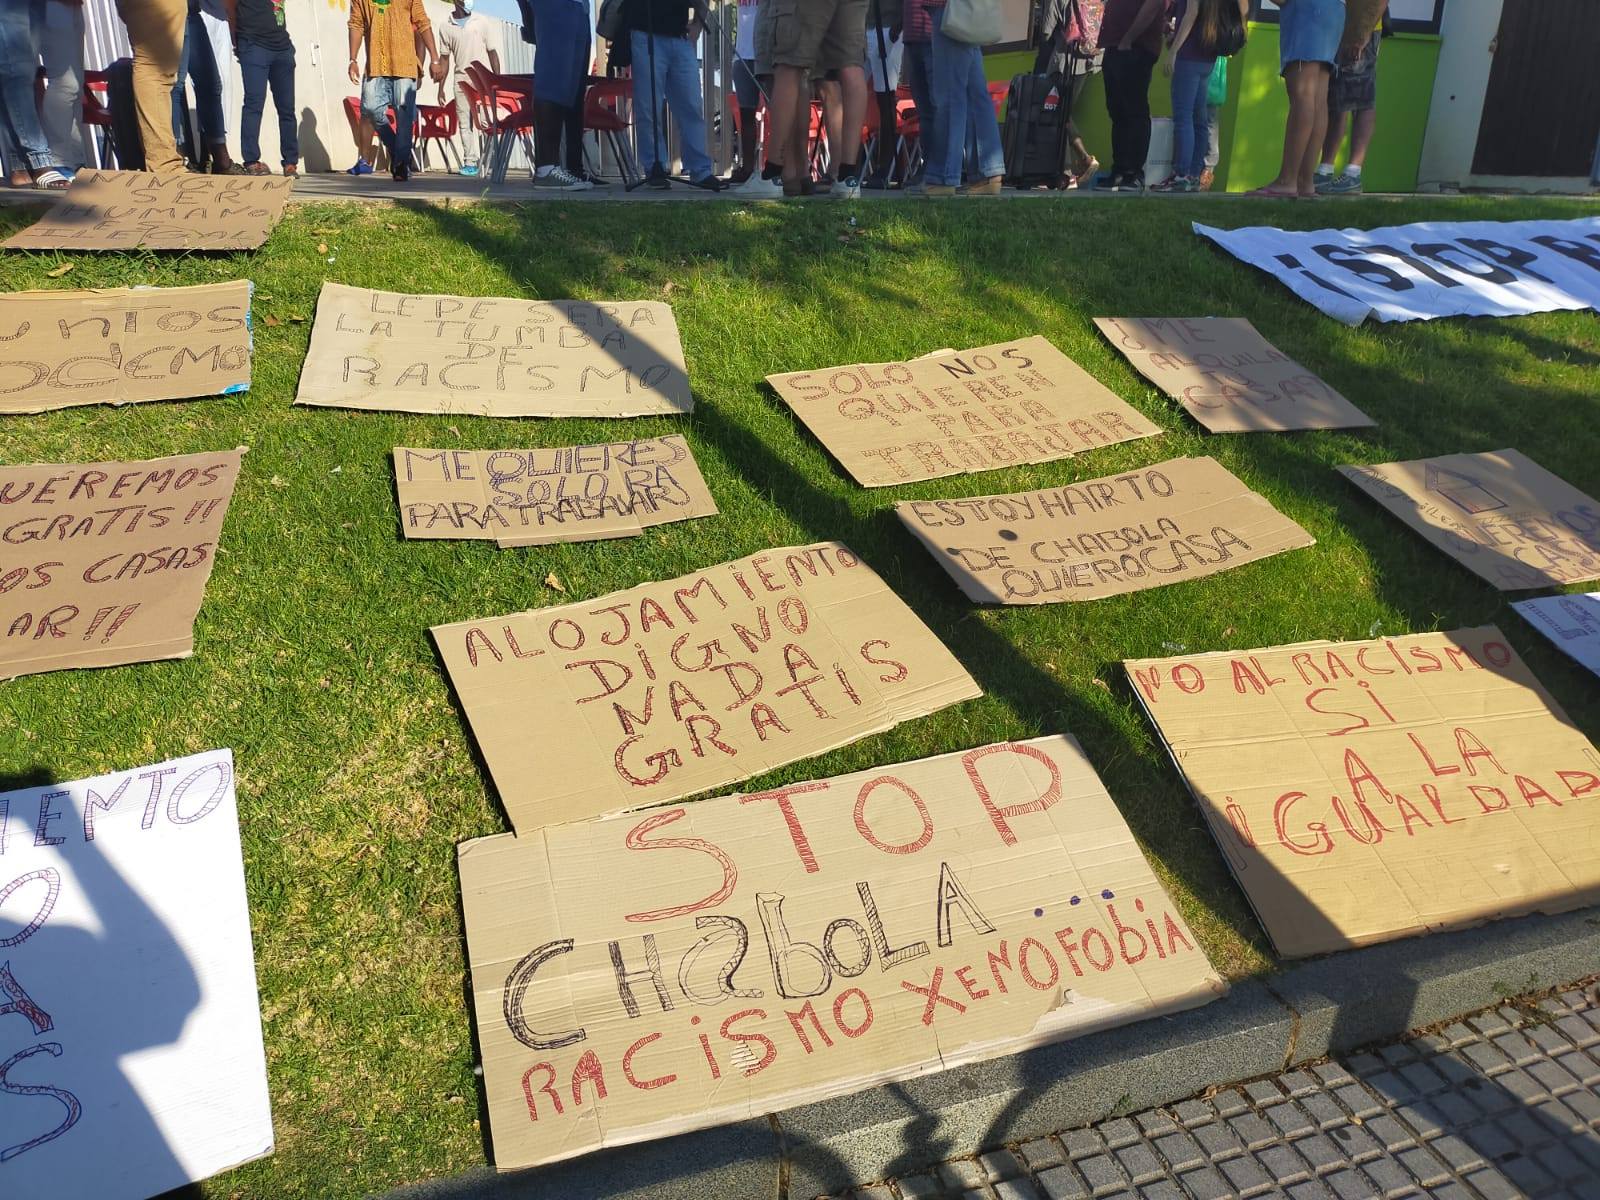 NINGUN
SER
HUMANO
ES
ILEGAL
UNTOS
ODEMO
LEPE SERA
LA TUMBA
DE
RACISMO
SOLO NOS
QUIEREN
PARA
TRABAJAR
¿ME
ALQUILA
TU
CASA?
¡STOP
UEREMOS
GRATIS!!
OS CASAS
AR!!
ME QUIERES
SOLO PA
PARA TRABAJAR
ESTOY HARTO
DE CHABOLA
QUIERO CASA
QUEREMOS
CASA
ALOJAMIENTO
DIGNO
NADA
GRATIS
NO AL RACISMO
SI
A LA
IGUALDAD
IENTO
O
AS
S
STOP
CHABOLA...
RACISMO XENOFOBIA